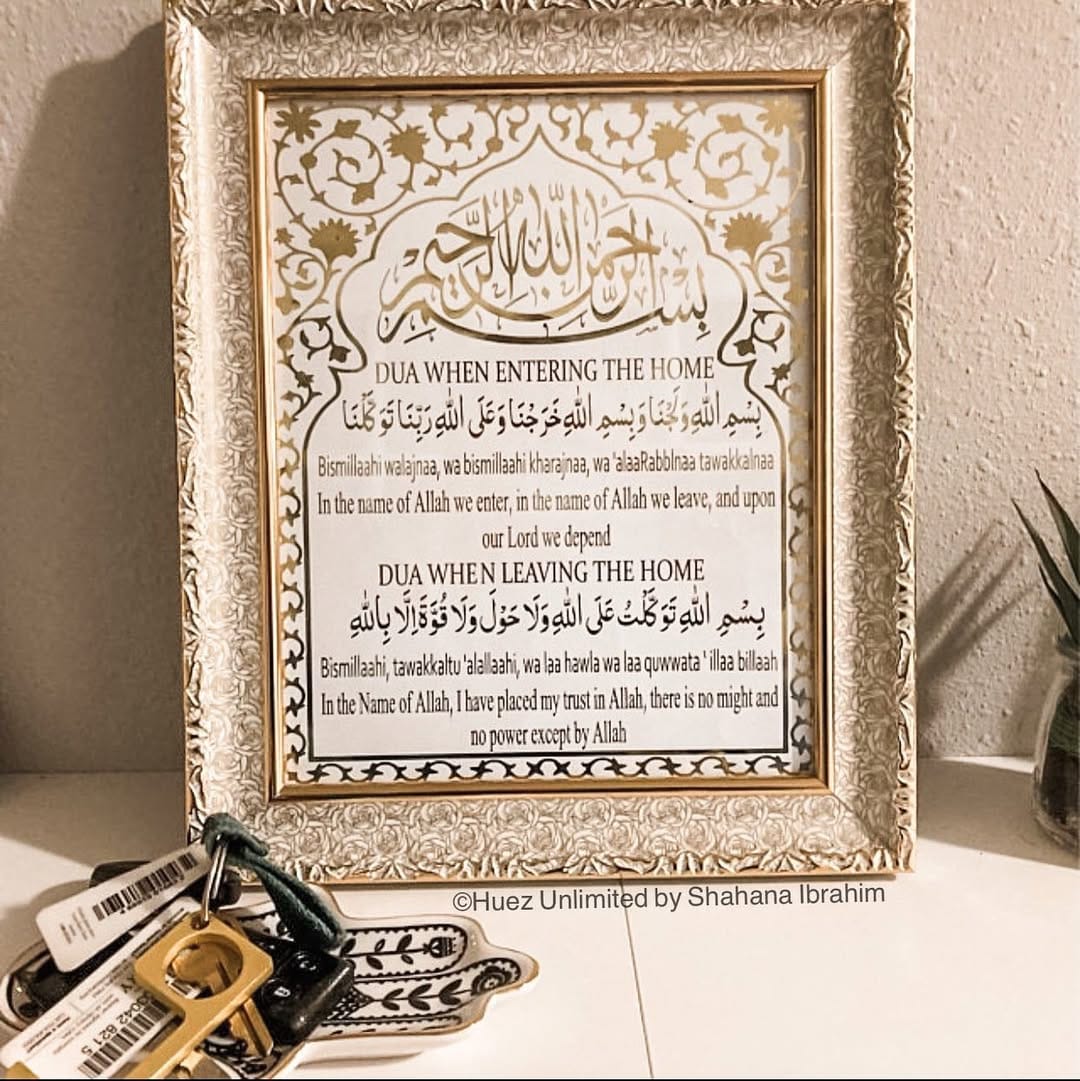 بِسْمِ اللهِ الرَّحْمٰنِ الرَّحِيْمِ
DUA WHEN ENTERING THE HOME
بِسْمِ اللهِ وَلَجْنَا وَبِسْمِ اللهِ خَرَجْنَا وَعَلَى اللهِ رَبِّنَا تَوَكَّلْنَا
Bismillaahi walajnaa, wa bismillaahi kharajnaa, wa 'alaaRabbInaa tawakkalnaa
In the name of Allah we enter, in the name of Allah we leave, and upon
our Lord we depend
DUA WHEN LEAVING THE HOME
بِسْمِ اللهِ تَوَكَّلْتُ عَلَى اللهِ وَلَا حَوْلَ وَلَا قُوَّةَ اِلَّا بِاللهِ
Bismillaahi, tawakkaltu 'alallaahi, wa laa hawla wa laa quwwata ' illaa billaah
In the Name of Allah, I have placed my trust in Allah, there is no might and
no power except by Allah
©Huez Unlimited by Shahana Ibrahim